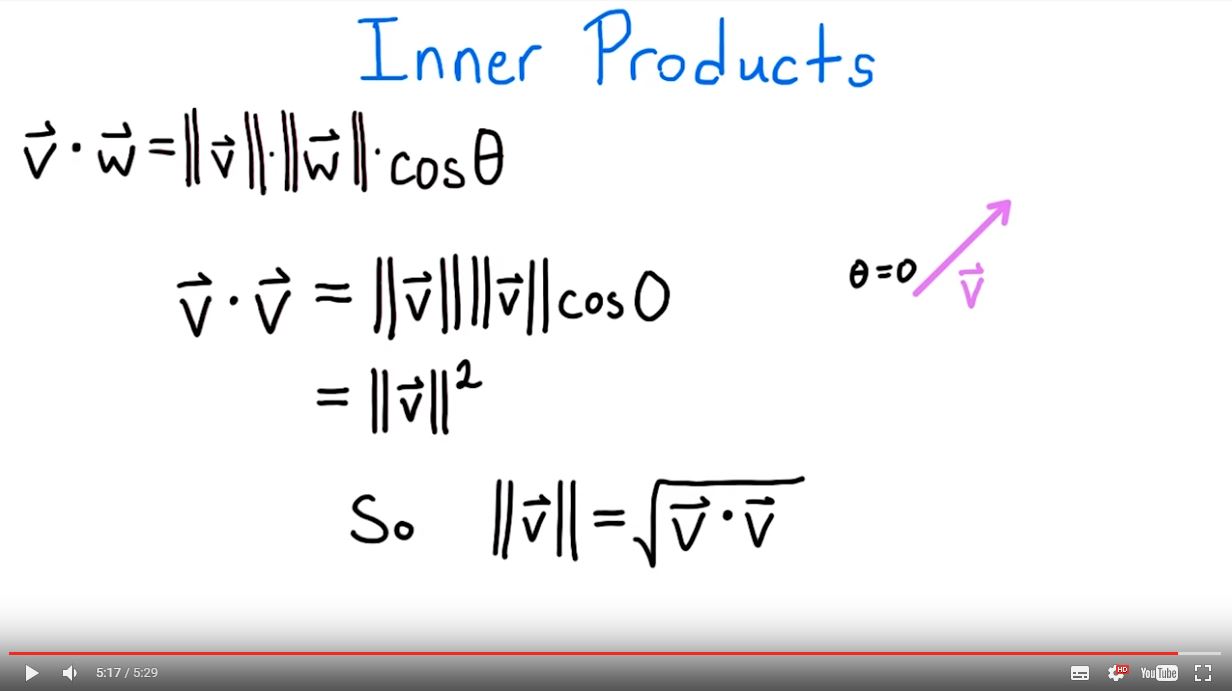 Inner Products
v⃗ · w⃗ = ‖v⃗‖·‖w⃗‖·cosθ
v⃗ · v⃗ = ‖v⃗‖‖v⃗‖cos0
θ=0
v⃗
= ‖v⃗‖²
So ‖v⃗‖ = √(v⃗ · v⃗)
5:17 / 5:29
HD
YouTube